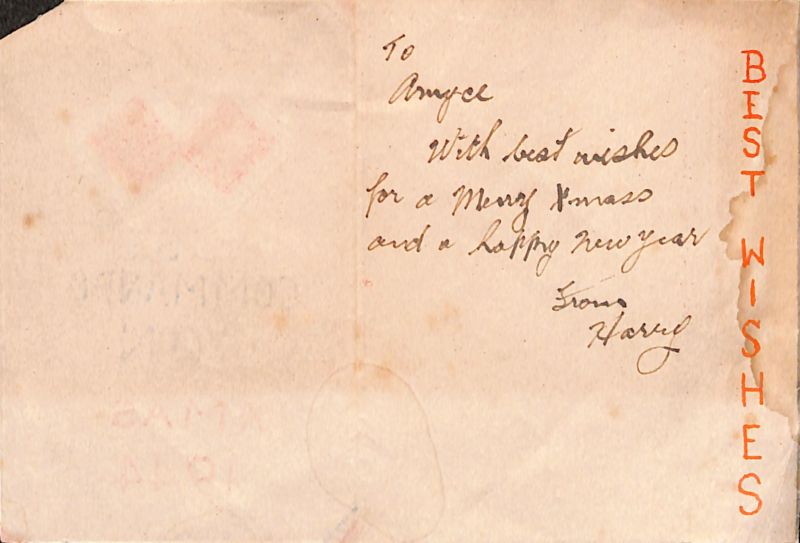 To
Amyce
With best wishes
for a Merry Xmass
and a happy New year
From
Harry
BEST WISHES